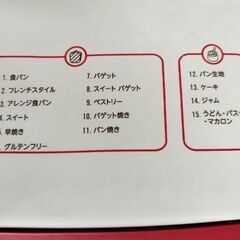 1. 食パン
2. フレンチスタイル
3. アレンジ食パン
4. スイート
5. 早焼き
6. グルテンフリー
7. バゲット
8. スイート バゲット
9. ペストリー
10. バゲット焼き
11. パン焼き
12. パン生地
13. ケーキ
14. ジャム
15. うどん・パスタ
・マカロン